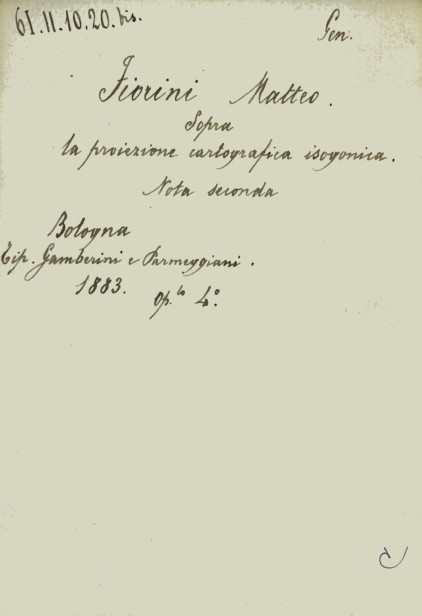 61.II.10.20.bis.
Gen.
Fiorini Matteo.
Sopra
la proiezione cartografica isogonica.
Nota seconda
Bologna
Tip. Gamberini e Parmeggiani.
1883. op.lo 4.o